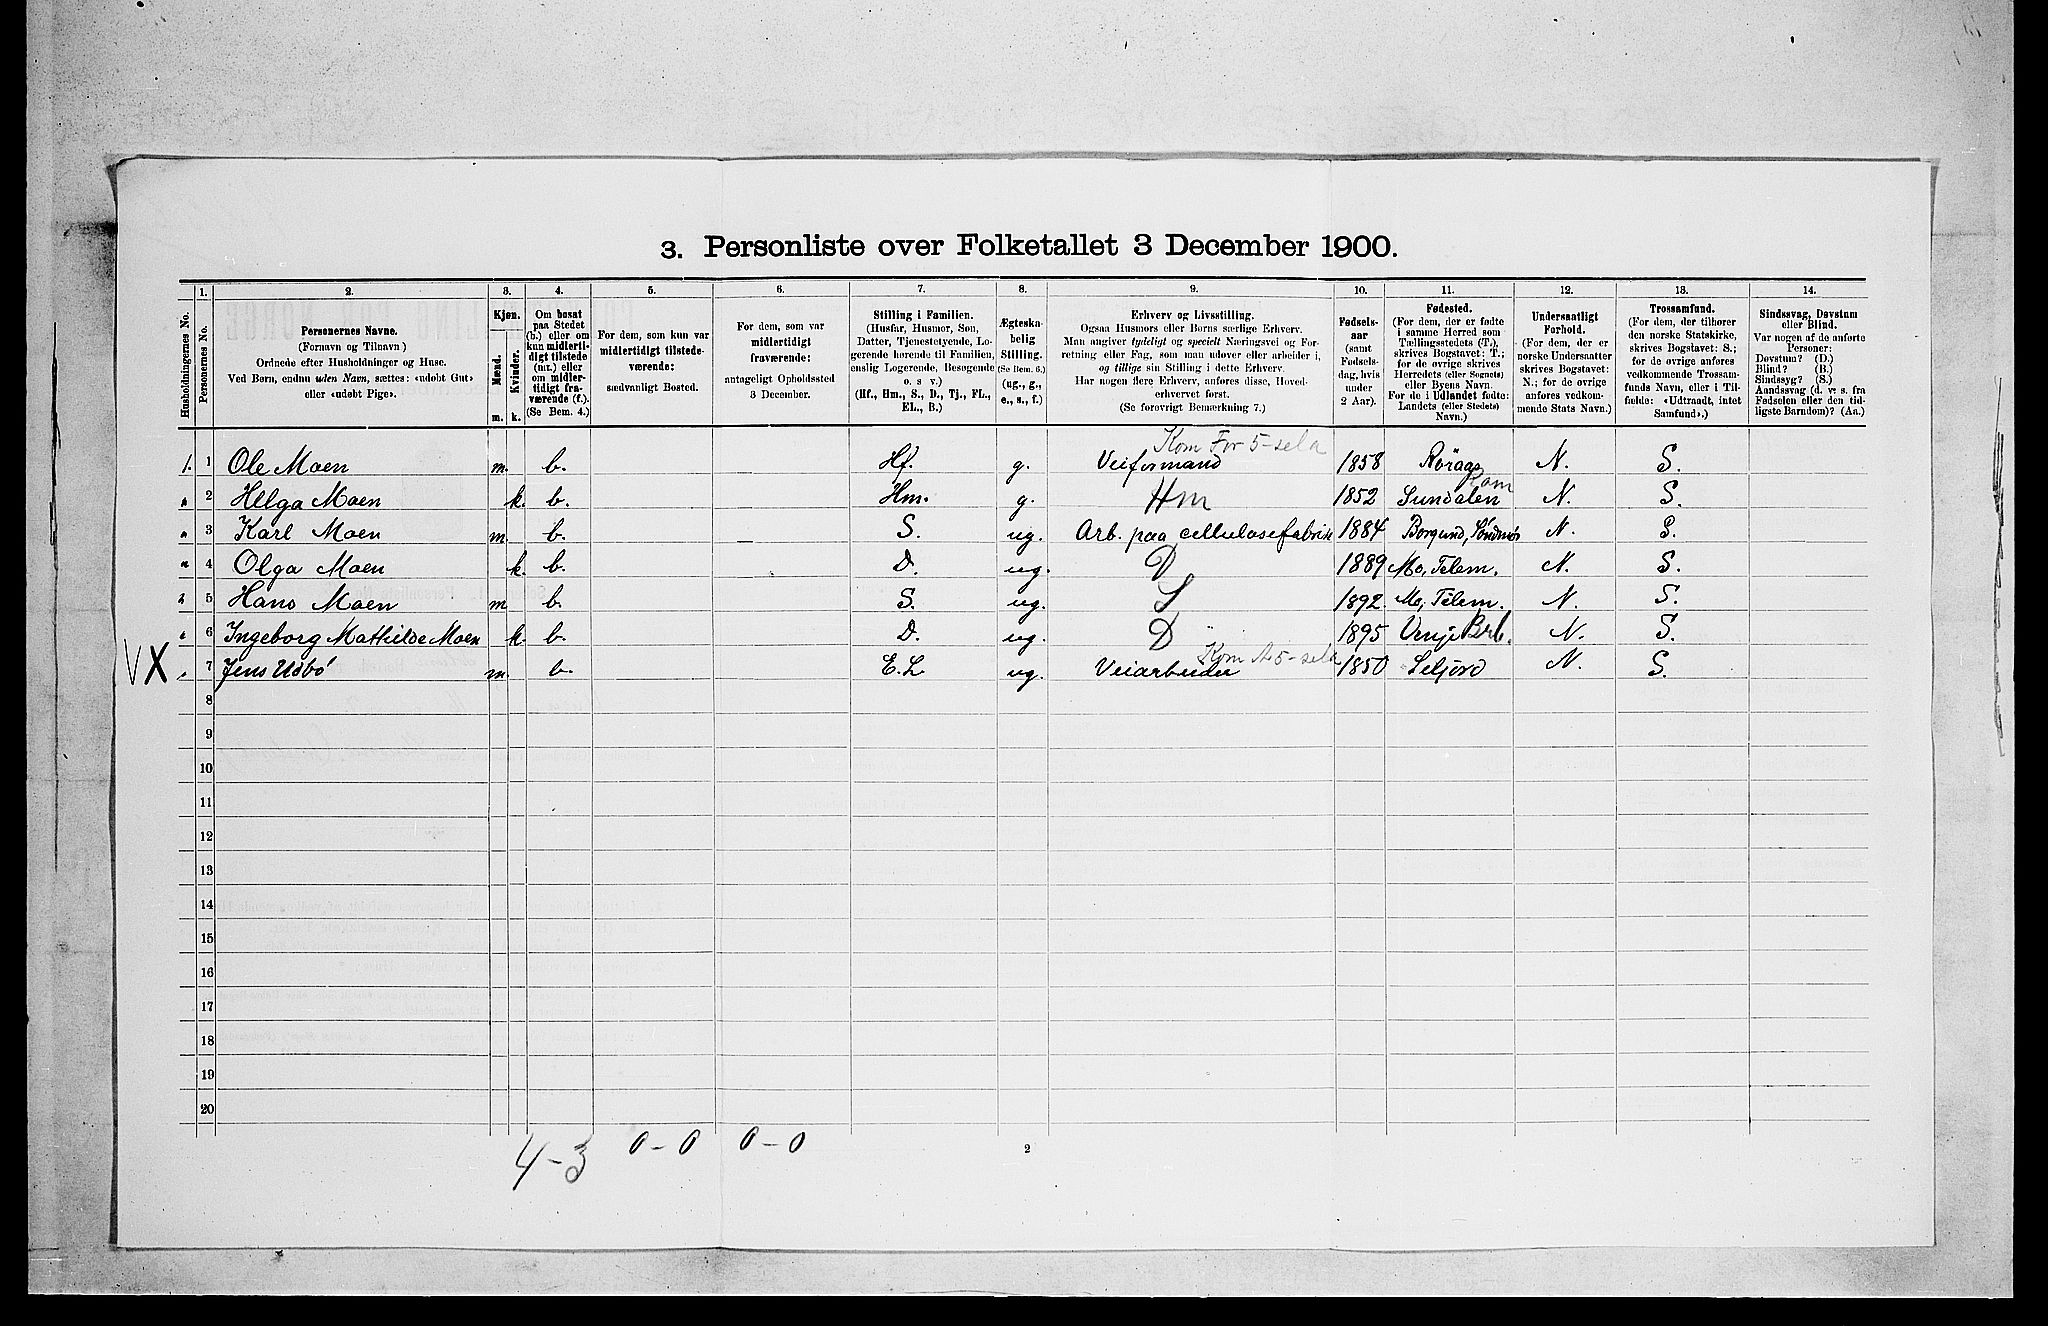 3. Personliste over Folketallet 3 December 1900.
Husholdningernes No.
1. Personernes No.
2. Personernes Navne. (Fornavn og Tilnavn) Ordnede efter Husholdninger og Huse. Ved Børn, endnu uden Navn, sættes: «udøbt Gut» eller «udøbt Pige».
3. Kjøn. Mænd. m. Kvinder. k.
4. Om bosat paa Stedet (b.) eller om kun midlertidigt tilstede (mt.) eller om midlertidigt fraværende (f.). (Se Bem. 4.)
5. For dem, som kun var midlertidigt tilstedeværende: sædvanligt Bosted.
6. For dem, som var midlertidigt fraværende: antageligt Opholdssted 3 December.
7. Stilling i Familien. (Husfar, Husmor, Søn, Datter, Tjenestetyende, Logerende hørende til Familien, enslig Logerende, Besøgende o. s v.) (Hf., Hm., S., D., Tj., FL., EL., B.)
8. Ægteskabelig Stilling. (Se Bem. 6.) (ug., g., e., s., f.)
9. Erhverv og Livsstilling. Ogsaa Husmors eller Børns særlige Erhverv. Man angiver tydeligt og specielt Næringsvei og Forretning eller Fag, som man udøver eller arbeider i, og tillige sin Stilling i dette Erhverv. Har nogen flere Erhverv, anføres disse, Hovederhvervet først. (Se forøvrigt Bemærkning 7.)
10. Fødselsaar (samt Fødselsdag, hvis under 2 Aar).
11. Fødested. (For dem, der er fødte i samme Herred som Tællingsstedets (T.), skrives Bogstavet: T.; for de øvrige skrives Herredets (eller Sognets) eller Byens Navn. For de i Udlandet fødte: Landets (eller Stedets) Navn.)
12. Undersaatligt Forhold. (For dem, der er norske Undersaatter skrives Bogstavet: N.; for de øvrige anføres vedkommende Stats Navn.)
13. Trossamfund. (For dem, der tilhører den norske Statskirke, skrives Bogstavet: S.; for de øvrige anføres vedkommende Trossamfunds Navn, eller i Tilfælde: «Udtraadt, intet Samfund».)
14. Sindssvag, Døvstum eller Blind. Var nogen af de anførte Personer: Døvstum? (D.) Blind? (B.) Sindssyg? (S.) Aandssvag (d. v. s. fra Fødselen eller den tidligste Barndom)? (Aa.)
Kom For 5-sela
1. 1 Ole Moen m. b. Hf. g. Veiformand 1858 Röraas N. S.
Rom
" 2 Helga Moen k. b. Hm. g. Hm 1852 Sundalen N. S.
" 3 Karl Moen m. b. S. ug. Arb. paa cellulosefabrik 1884 Borgund, Söndmör N. S.
" 4 Olga Moen k. b. D. ug. D 1889 Mo, Telem. N. S.
" 5 Hans Moen m b. S. ug. S 1892. Mo, Telem. N. S.
" 6 Ingeborg Mathilde Moen k. b. D. ug. D 1895 Venje Brb. N. S.
Kom A 5-sela
VX " 7 Jens Udbö m. b. E. L ug. Veiarbeider 1850 Seljord N. S.
8
9
10
11
12
13
14
15
16
17
18
19
20
4-3 0-0 0-0
2